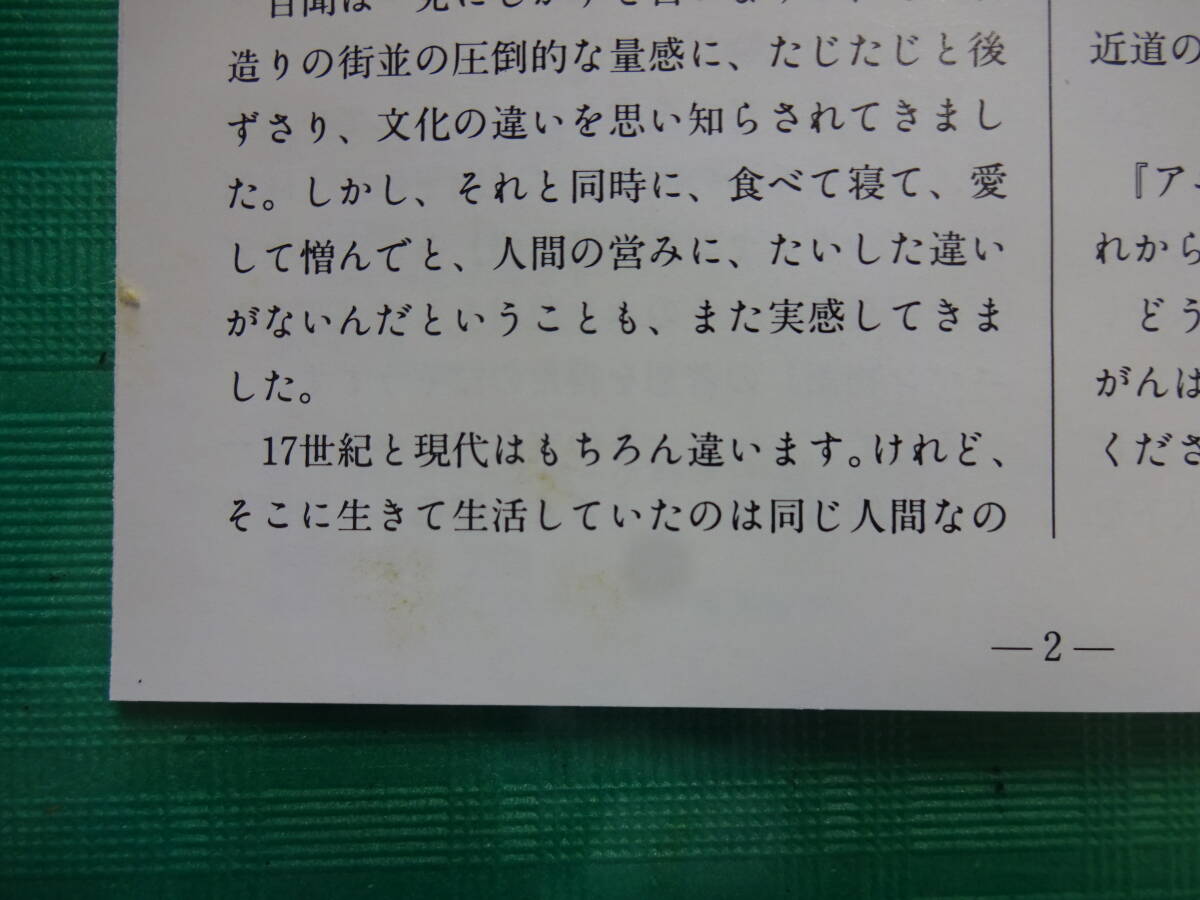 造りの街並の圧倒的な量感に、たじたじと後
ずさり、文化の違いを思い知らされてきまし
た。しかし、それと同時に、食べて寝て、愛
して憎んでと、人間の営みに、たいした違い
がないんだということも、また実感してきま
した。
17世紀と現代はもちろん違います。けれど、
そこに生きて生活していたのは同じ人間なの
近道の
『ア
れから
どう
がんは
くださ
—2—